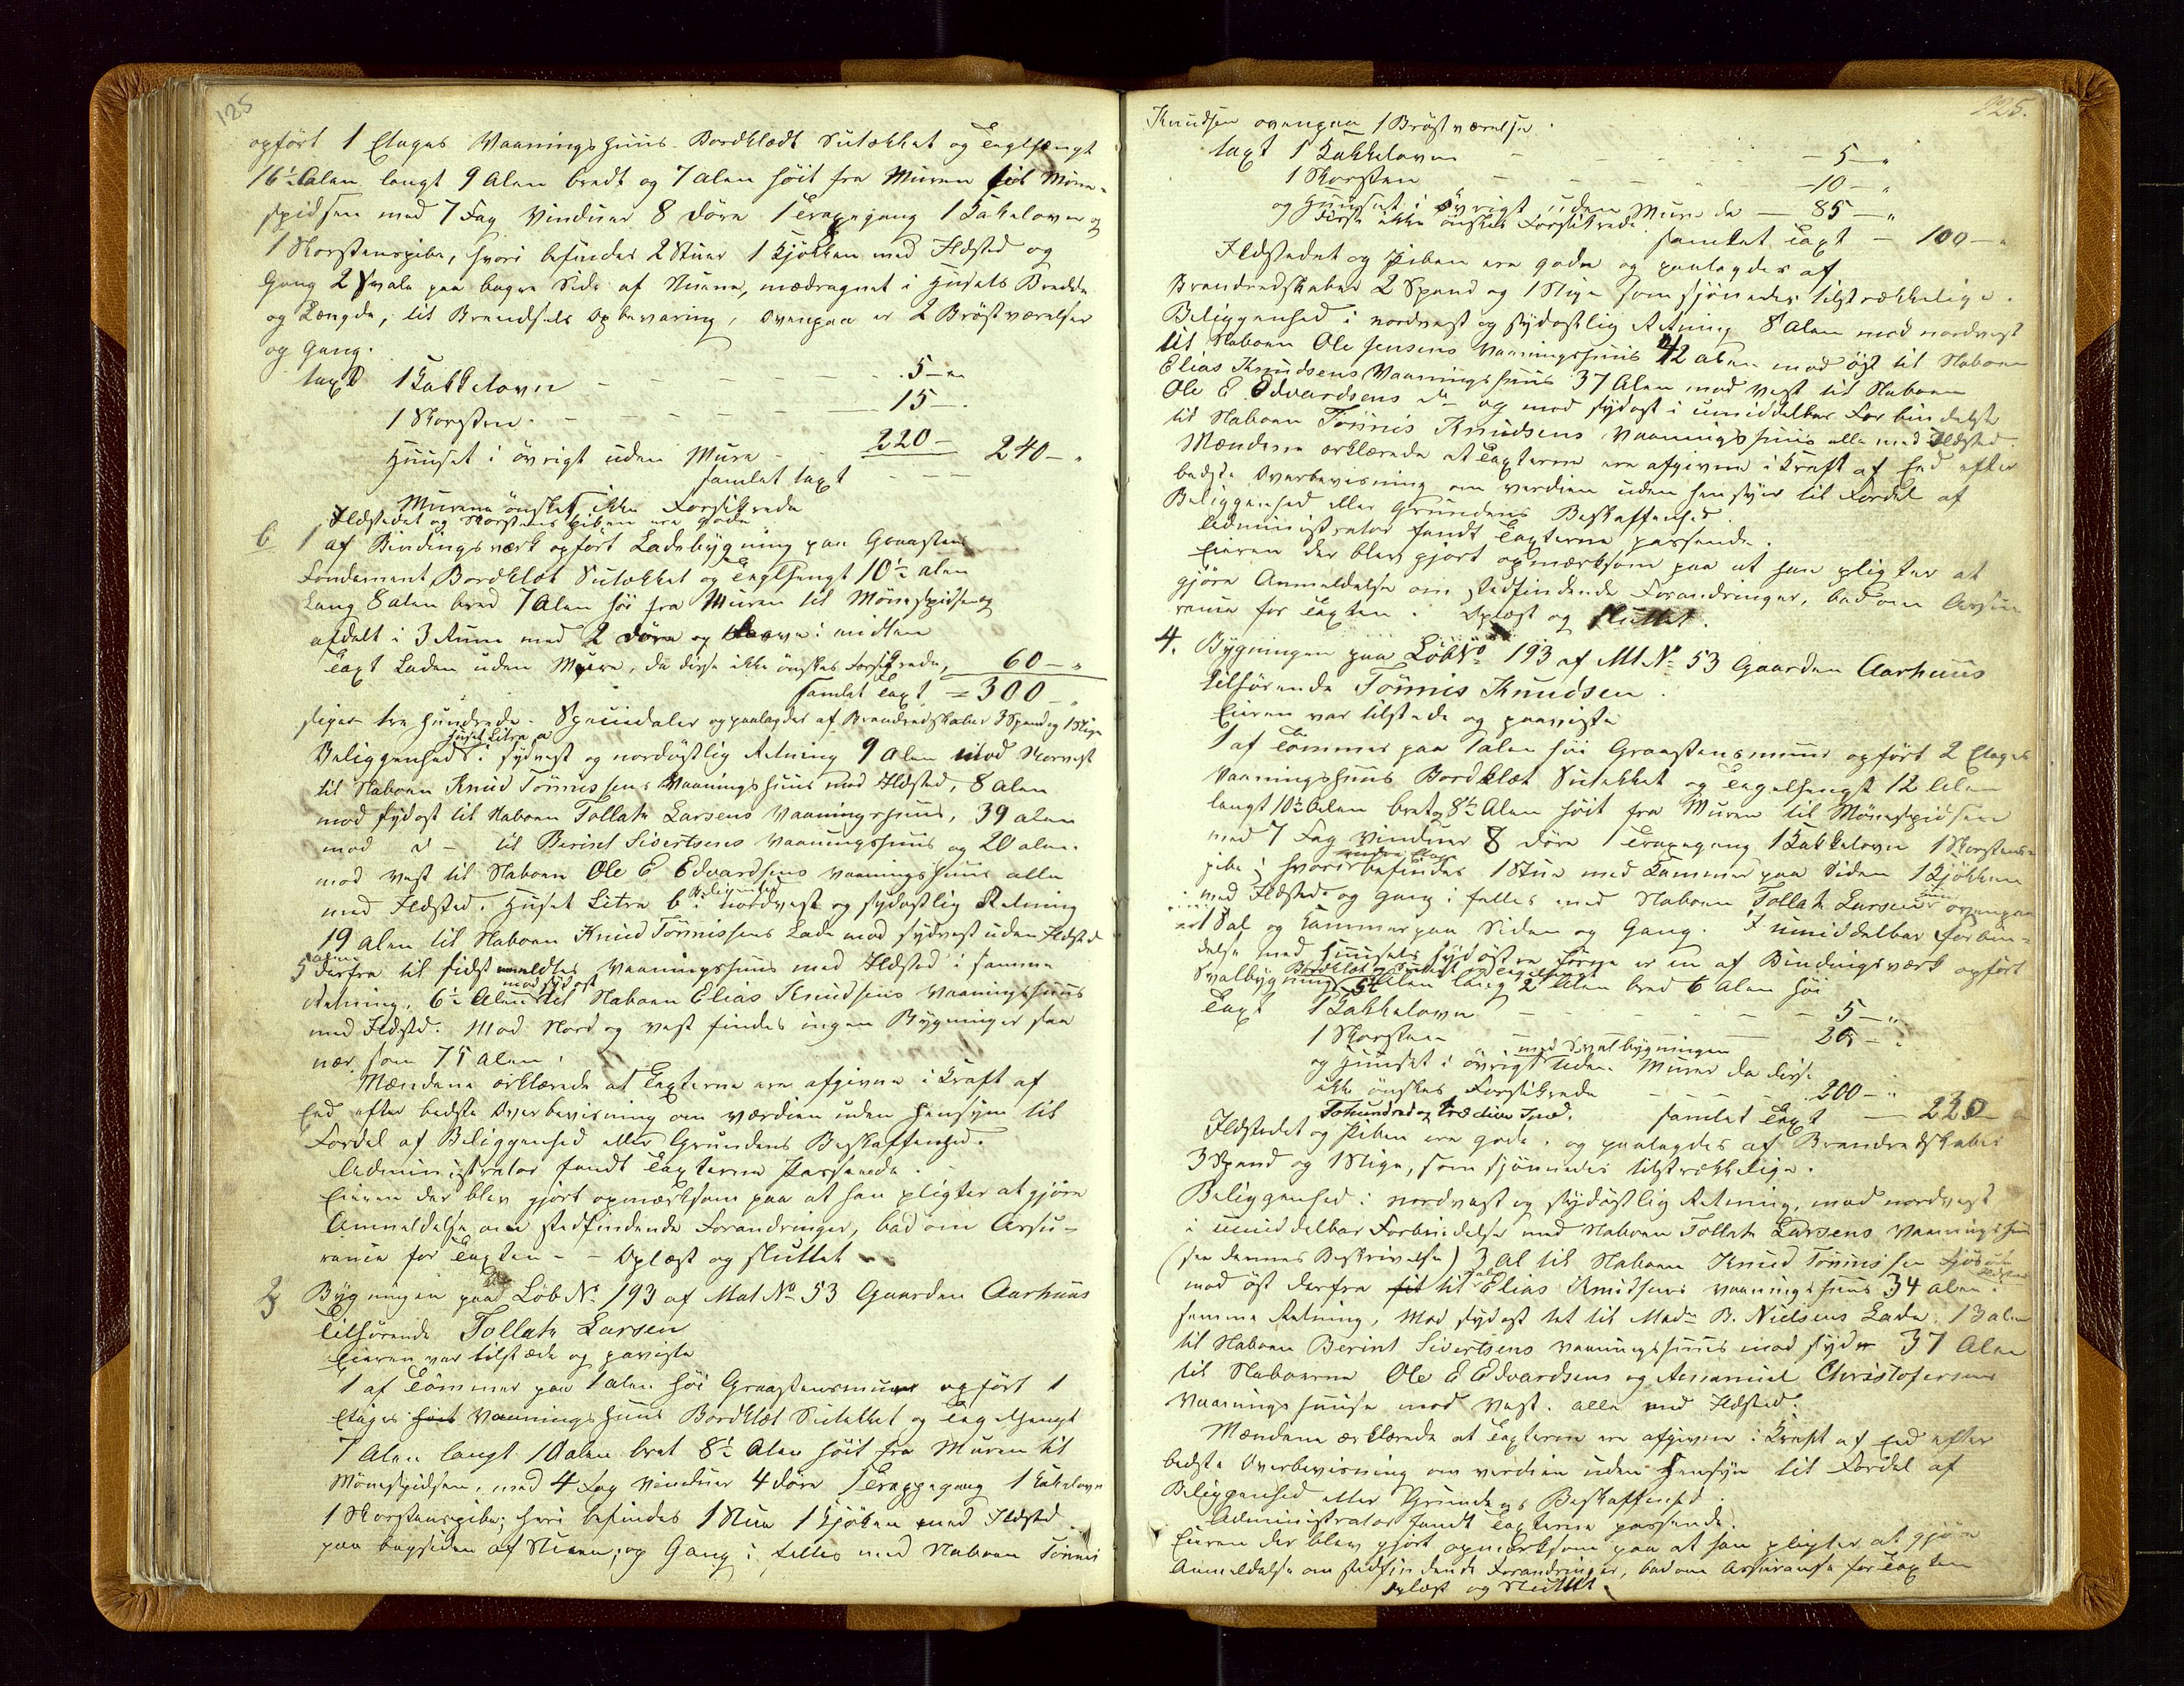 125
opført 1 Etages Vaaningshuus Bordklædt Sutækket og Teglhengt
16½ Alen langt 9 Alen bredt og 7 Alen høit fra Muren til Møne-
spidsen med 7 Fag Vinduer 8 Døre 1 Trapegang 1 Kakelovn og
1 Skorstenspibe, hvori befindes 2 Stuer 1 Kjøkken med Ildsted og
Gang 2 Svale paa bagre Side af Stuene, nedragnet i Husets Bredde
og Længde, til Brændsels Opbevaring, ovenpaa er 2 Bröstværelser
og Gang.
taxt 1 Kakkelovn - - - 5 -
1 Skorsten - - - 15 -
Huuset i övrigt uden Mure - 220 -
samlet taxt - - 240 -
Murene önskes ikke Forsikrede
Ildstedet og Skorstenspiben ere gode
b 1 af Bindingsværk opført Ladebygning paa Graasteens
Fondament, Bordklæt Sutækket og Teglhengt 10½ Alen
lang 8 alen bred 7 Alen höi fra Muren til Mönespidsen og
afdelt i 3 Rum med 2 Döre og i midten
Taxt Laden uden Mure, da disse ikke ønskes Forsikrede, 60 -
Samlet Taxt = 300 -
siger tre hundrede Speciedaler og paalagdes af Brandredskaber 3 Spand og 1 Stige
Huset Litra a
Beliggenhed i sydvest og nordöstlig Retning 9 Alen mod Norvest
til Naboen Knud Tönnessens Vaaningshuus med Ildsted, 8 Alen
mod sydost til Naboen Tollak Larsens Vaaningshuus, 39 alen
mod d - til Berint Sivertsens Vaaningshuus og 20 alen
mod vest til Naboen Ole E Edvardsens Vaaningshuus alle
med Ildsted. Huset Litra b i nordvest og sydostlig Retning
19 Alen til Naboen Knud Tönnissens Lade mod sydvest uden Ildsted
5 Alen derfra til sidst meldtes Vaaningshuus med Ildsted i samme
Retning, 6½ Alen mod sydost til Naboen Elias Knudsens Vaaningshuus
med Ildsted. Mod Nord og vest findes ingen Bygninger saa
nær som 75 Alen.
Mændene erklærede at Taxterne ere afgivne i Kraft af
Eed efter bedste Overbevisning om værdien uden Hensyn til
Fordel af Beliggenhed eller Grundens Beskaffenhed.
Administrator fandt Taxterne Passende.
Eieren der blev gjort opmærksom paa at han pligter at gjöre
Anmeldelse om stedfindende Forandringer, bad om Assu-
rance for Taxten - - Oplæst og sluttet
3 Bygningen paa Löb No 193 af Mat No 53 Gaarden Aarhuus
tilhörende Tollak Larsen
Eieren var tilstæde og paviste
1 af Tömmer paa 1 alen höi Graasteensmuur opført 1
Etages Vaaningshuus Bordklæt Sutækket og Teglhengt
7 Alen langt 10 alen bret 8½ Alen höit fra Muren til
Mönespidsen, med 4 Fag Vinduer 4 Döre 1 Trappegang 1 Kakelovn
1 Skorstenspibe; hvori befindes 1 Stue 1 Kjöken med Ildsted
paa bagsiden af Stuen, og Gang i felles med Naboen Tönnis
125.
Knudsen ovenpaa 1 Bröstværelse.
taxt 1 Kakkelovn - - - 5 -
1 Skorsten - - - 10 -
og Huuset i övrigt uden Mure da - 85 -
disse ikke önskes Forsikrede. samlet Taxt - 100 -
Ildstedet og Piben ere gode og paalagdes af
Brandredskaber 2 Spand og 1 Stige som skjönnedes tilstrækkelige.
Beliggenhed i nordvest og sydostlig Retning 8 Alen mod nordvest
til Naboen Ole Jensens Vaaningshuus 42 alen mod öst til Naboen
Elias Knudsens Vaaningshuus 37 Alen mod Vest til Naboen
Ole E. Edvardsens do og mod sydost i umiddelbar Forbindelse
til Naboen Tönnis Knudsens Vaaningshuus alle med Ildsted.
Mændene erklærede at Taxterne ere afgivne i Kraft af Eed efter
bedste Overbevisning om verdien uden Hensyn til Fordel af
Beliggenhed eller Grundens Beskaffenhed.
Administrator fandt Taxterne passende.
Eieren der blev gjort opmærksom paa at han pligter at
gjöre Anmeldelse om stedfindende Forandringer, bad om Assu-
rance for Taxten. Oplæst og sluttet.
4. Bygningen paa Löb No 193 af Mt No 53 Gaarden Aarhuus
tilhörende Tönnis Knudsen.
Eieren var tilstede og paaviste
1 af Tömmer paa 1 alen höi Graasteensmuur opført 2 Etages
Vaaningshuus Bordklæt Sutækket og Teglhengt 12 Alen
langt 10½ Alen bret og 8½ Alen höit fra Muren til Mönespidsen
med 7 Fag Vinduer 8 Döre 1 Trapegang 1 Kakkelovn 1 Skorstens-
pibe; hvori befindes 1 Stue med Kammer paa Siden 1 Kjökken
med Ildsted og Gang i felles med Naboen Tollak Larsen ovenpaa
et Sal og Kammer paa Siden og Gang. I umiddelbar Forbin-
delse med Huusets sydöstre er en af Bindingsværk opført
Bordklæt og Sutækket og Teglhengt
Svalbygning 5½ Alen lang 2 Alen bred 6 Alen höi
Taxt 1 Kakkelovn - - - 5 -
1 Skorsten - 25 -
og Huuset i övrigt med Svalbygningen uden Mure da disse
ikke önskes Forsikrede - - 200 -
Tohundred og tredive Spd. samlet Taxt - 230
Ildstedet og Piben ere gode. og paalagdes af Brandredskaber
3 Spand og 1 Stige, som skjönnedes tilstrækkelige.
Beliggenhed i nordvest og sydöstlig Retning, mod nordvest
i umiddelbar Forbindelse med Naboen Tollak Larsens Vaaningshuus
(see dennes Beskrivelse) 3 Al til Naboen Knud Tönnissen Fjös uden Ildsted
mod öst derfra til Elias Knudsens Vaaningshuus 34 alen i
samme Retning, mod sydost tet til Mads B. Nielsens Lade, 13 alen
til Naboen Berint Sivertsens Vaaningshuus mod syd 37 Alen
til Naboerne Ole E Edvardsens og Christofersens
Vaaningshuuse mod Vest. alle med Ildsted.
Mændene erklærede at Taxterne ere afgivne i Kraft af Eed efter
bedste Overbevisning om verdien uden Hensyn til Fordel af
Beliggenhed eller Grundens Beskaffenhed.
Administrator fandt Taxterne passende.
Eieren der blev gjort opmærksom paa at han pligter at gjöre
Anmeldelse om stedfindende Forandringer, bad om Assuranse for Taxten
Oplæst og sluttet.